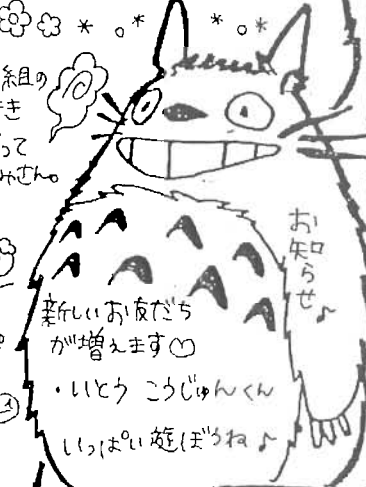 組の
き
って
みさん。
お知らせ♪
新しいお友だち
が増えます♡
・いとう こうじゅんくん
いっぱい遊ぼうね♪